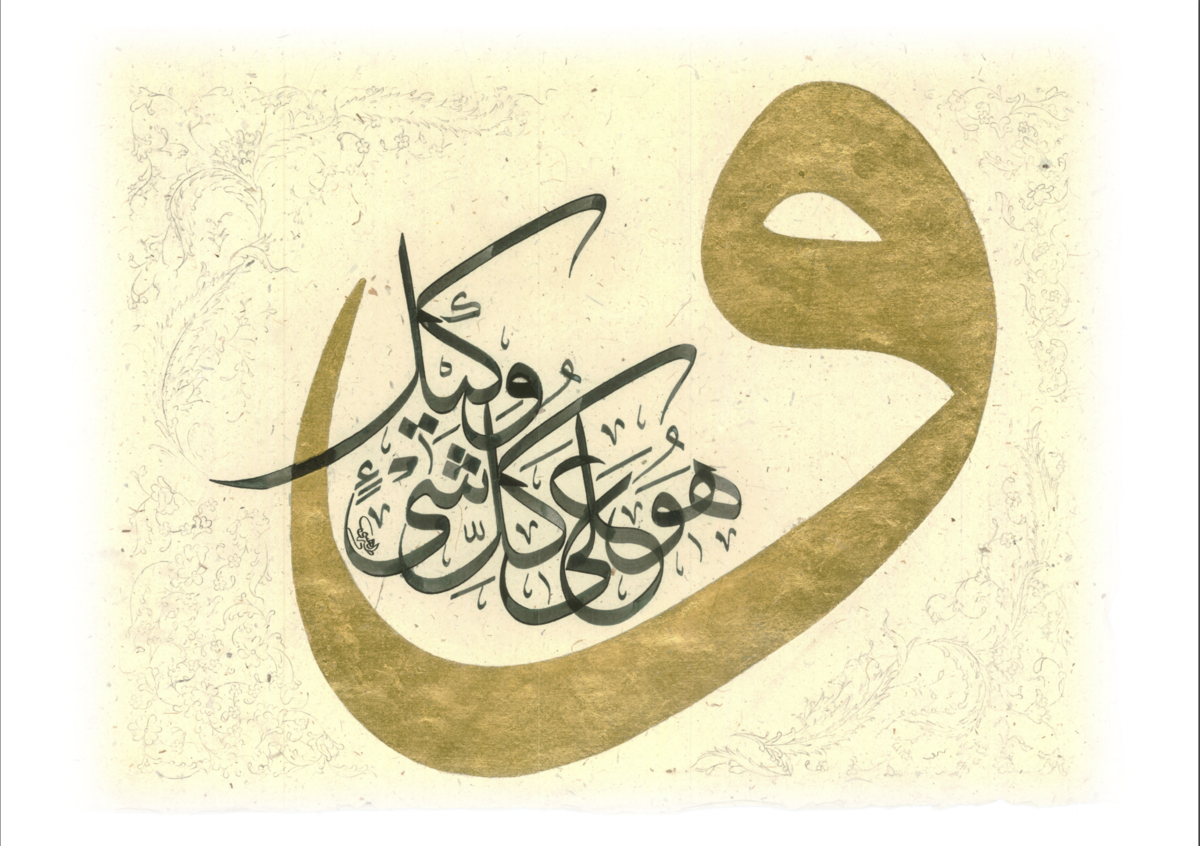 وَهُوَ عَلَى كُلِّ شَيْءٍ وَكِيلٌ